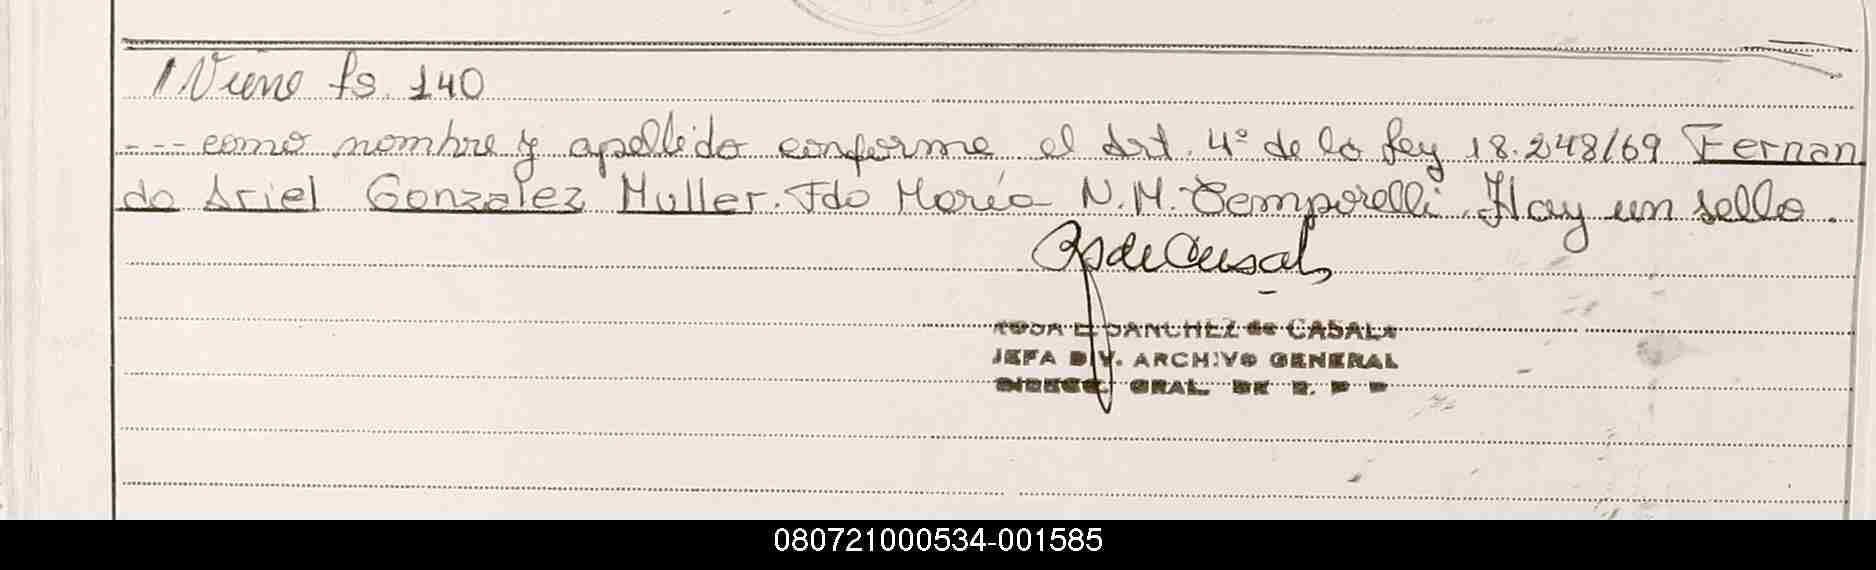 Viene fs. 140
--- como nombre y apellido conforme el Art. 4° de la ley 18.248/69 Fernan
do Ariel Gonzalez Muller. Fdo María N.M. Temporelli. Hay un sello.
SANCHEZ de CASALA
JEFA DIV. ARCHIVO GENERAL
GRAL. DE
080721000534-001585